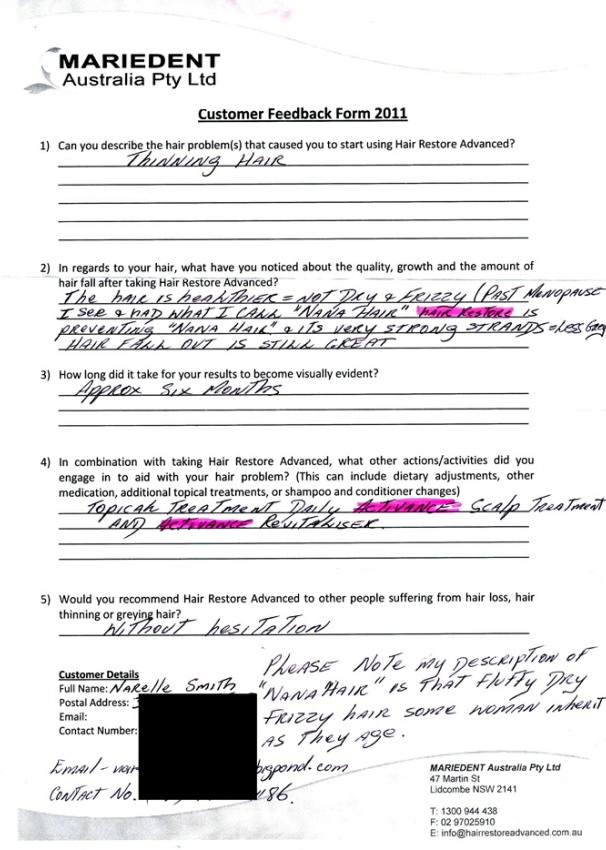 MARIEDENT
Australia Pty Ltd
Customer Feedback Form 2011
1) Can you describe the hair problem(s) that caused you to start using Hair Restore Advanced?
THINNING HAIR
2) In regards to your hair, what have you noticed about the quality, growth and the amount of
hair fall after taking Hair Restore Advanced?
The HAIR IS heALTHIER = NOT DRY & FRIZZY (PAST MENOPAUSE
I SEE & HAD WHAT I CALL "NANA HAIR" HAIR RESTORE IS
PREVENTING "NANA HAIR" & ITS VERY STRONG STRANDS = LESS
HAIR FALL OUT IS STILL GREAT
3) How long did it take for your results to become visually evident?
APPROX SIX MONTHS
4) In combination with taking Hair Restore Advanced, what other actions/activities did you
engage in to aid with your hair problem? (This can include dietary adjustments, other
medication, additional topical treatments, or shampoo and conditioner changes)
TOPICAL TREATMENT DAILY ACTIVANCE SCALP TREATMENT
AND ACTIVANCE REVITALISER
5) Would you recommend Hair Restore Advanced to other people suffering from hair loss, hair
thinning or greying hair?
WITHOUT hESITATION
Customer Details
Full Name: NARelle SMITH
Postal Address:
Email:
Contact Number:
EMAIL - bigpond.com
CONTACT No. 86.
PLEASE NOTE MY DESCRIPTION OF
"NANA HAIR" IS THAT FLUFFY DRY
FRIZZY HAIR SOME WOMAN INHERIT
AS THEY AGE.
MARIEDENT Australia Pty Ltd
47 Martin St
Lidcombe NSW 2141
T: 1300 944 438
F: 02 97025910
E: info@hairrestoreadvanced.com.au